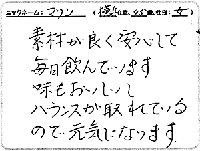 ニックネーム: マウン
性別: 女
素材が良く安心して
毎日飲んでいます
味もおいしい
バランスが取れている
ので元気になります